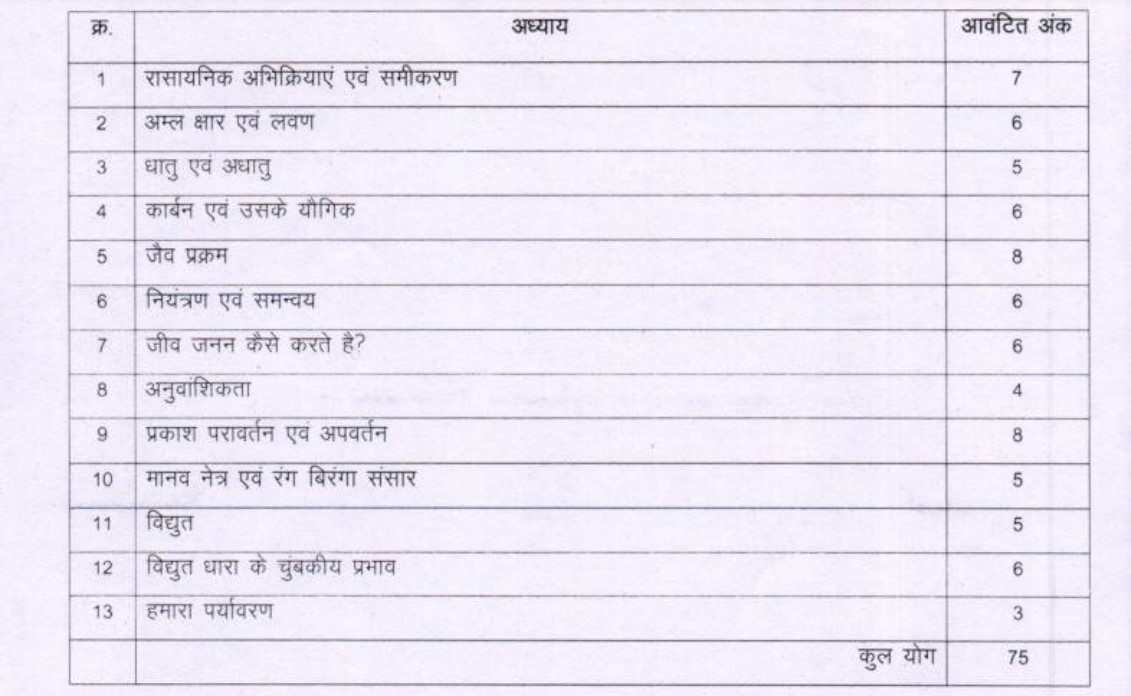 क्र. अध्याय आवंटित अंक
1 रासायनिक अभिक्रियाएं एवं समीकरण 7
2 अम्ल क्षार एवं लवण 6
3 धातु एवं अधातु 5
4 कार्बन एवं उसके यौगिक 6
5 जैव प्रक्रम 8
6 नियंत्रण एवं समन्वय 6
7 जीव जनन कैसे करते है? 6
8 अनुवांशिकता 4
9 प्रकाश परावर्तन एवं अपवर्तन 8
10 मानव नेत्र एवं रंग बिरंगा संसार 5
11 विद्युत 5
12 विद्युत धारा के चुंबकीय प्रभाव 6
13 हमारा पर्यावरण 3
कुल योग 75